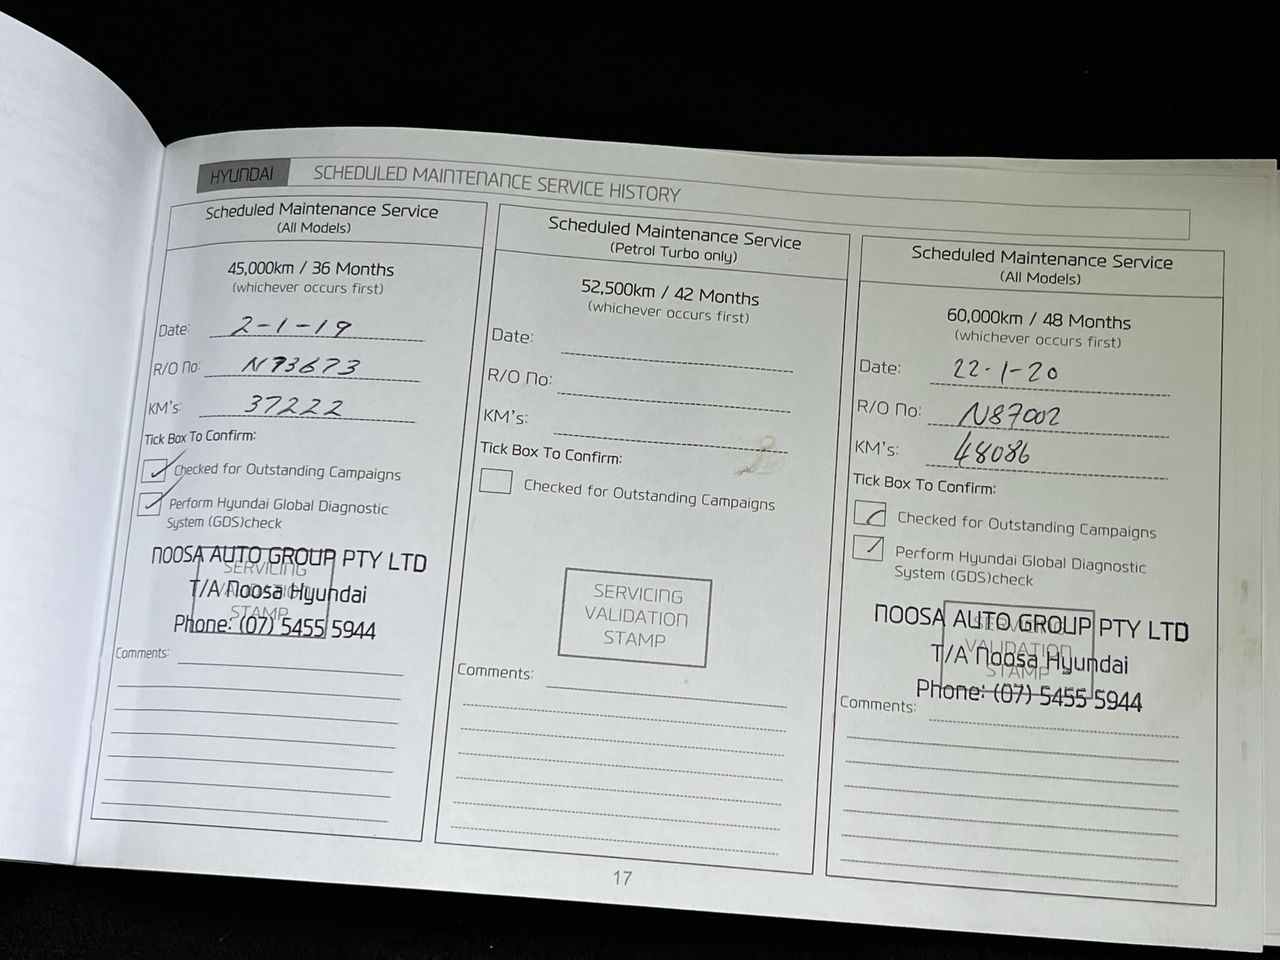 HYUNDAI SCHEDULED MAINTENANCE SERVICE HISTORY
Scheduled Maintenance Service
(All Models)
45,000km / 36 Months
(whichever occurs first)
Date: 2-1-19
R/O No: N73673
KM's: 37222
Tick Box To Confirm:
Checked for Outstanding Campaigns
Perform Hyundai Global Diagnostic
System (GDS)check
SERVICING
VALIDATION
STAMP
NOOSA AUTO GROUP PTY LTD
T/A Noosa Hyundai
Phone: (07) 5455 5944
Comments:
Scheduled Maintenance Service
(Petrol Turbo only)
52,500km / 42 Months
(whichever occurs first)
Date:
R/O No:
KM's:
Tick Box To Confirm:
Checked for Outstanding Campaigns
SERVICING
VALIDATION
STAMP
Comments:
Scheduled Maintenance Service
(All Models)
60,000km / 48 Months
(whichever occurs first)
Date: 22-1-20
R/O No: N87002
KM's: 48086
Tick Box To Confirm:
Checked for Outstanding Campaigns
Perform Hyundai Global Diagnostic
System (GDS)check
SERVICING
VALIDATION
STAMP
NOOSA AUTO GROUP PTY LTD
T/A Noosa Hyundai
Phone: (07) 5455 5944
Comments:
17